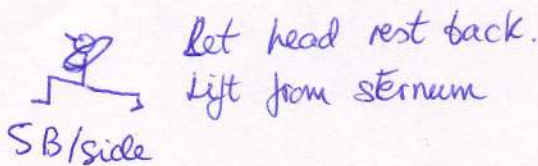 Let head rest back.
Lift from sternum
SB/side